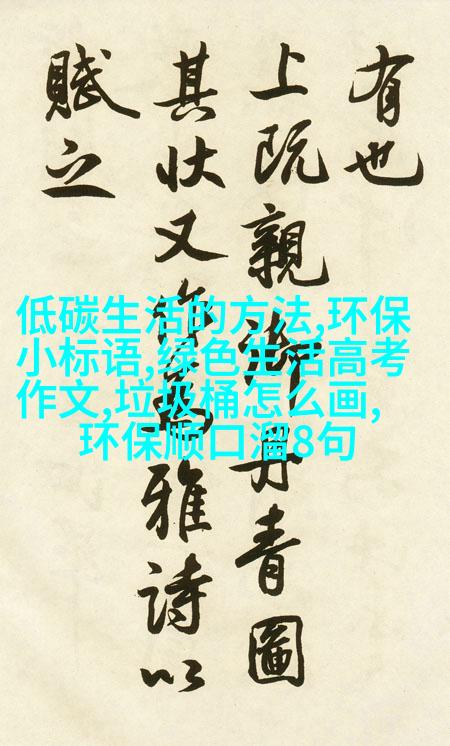 有也
上既親御丹青圖
其狀又為雅詩以
賦之
低碳生活的方法,环保
小标语,绿色生活高考
作文,垃圾桶怎么画,
环保顺口溜8句